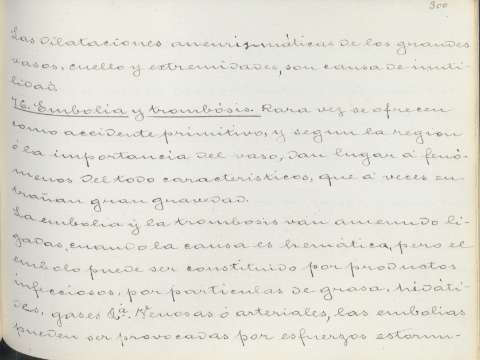 300
Las dilataciones aneurismáticas de los grandes
vasos, cuello y extremidades, son causa de inuti-
lidad.
76. Embolia y trombósis. Rara vez se ofrecen
como accidente primitivo, y segun la region
ó la importancia del vaso, dan lugar á fenó-
menos del todo caracteristicos, que á veces en-
trañan gran gravedad.
La embolia y la trombosis van amenudo li-
gadas, cuando la causa es hemática, pero el
embolo puede ser constituido por productos
infecciosos, por particulas de grasa, hidáti-
des, gases &ª. Venosas ó arteriales, las embolias
pueden ser provocadas por esfuerzos estornu-